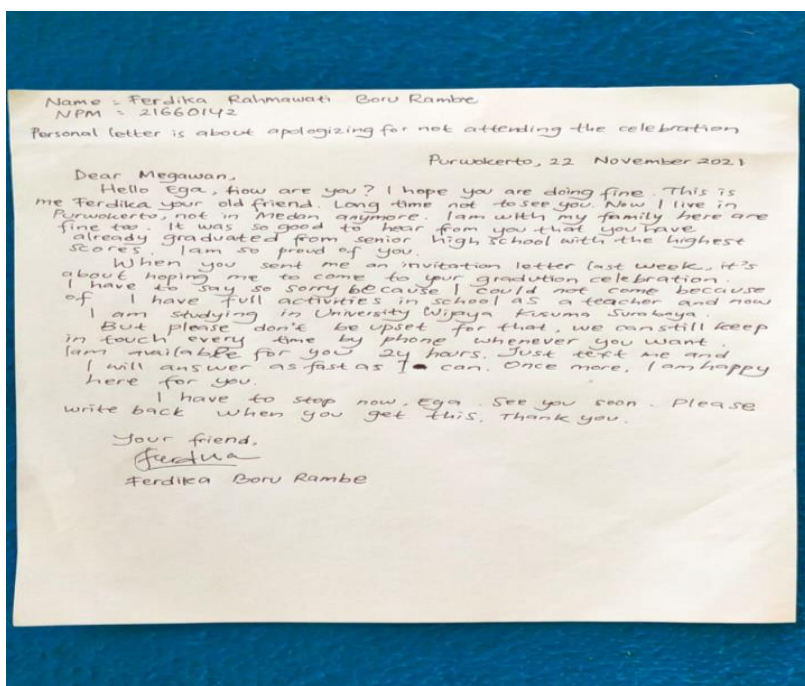 Name : Ferdika Rahmawati Boru Rambe
NPM : 21660142
Personal letter is about apologizing for not attending the celebration
Purwokerto, 22 November 2021
Dear Megawan,
Hello Ega, how are you? I hope you are doing fine. This is
me Ferdika your old friend. Long time not to see you. Now I live in
Purwokerto, not in Medan anymore. I am with my family here are
fine too. It was so good to hear from you that you have
already graduated from senior high school with the highest
scores. I am so proud of you.
When you sent me an invitation letter last week, it's
about hoping me to come to your gradution celebration.
I have to say so sorry because I could not come because
of I have full activities in school as a teacher and now
I am studying in University Wijaya Kusuma Surabaya.
But please don't be upset for that, we can still keep
in touch every time by phone whenever you want.
I am available for you 24 hours. Just text me and
I will answer as fast as I can. Once more, I am happy
here for you.
I have to stop now, Ega. See you soon. Please
write back when you get this. Thank you.
Your friend,
Ferdika
Ferdika Boru Rambe